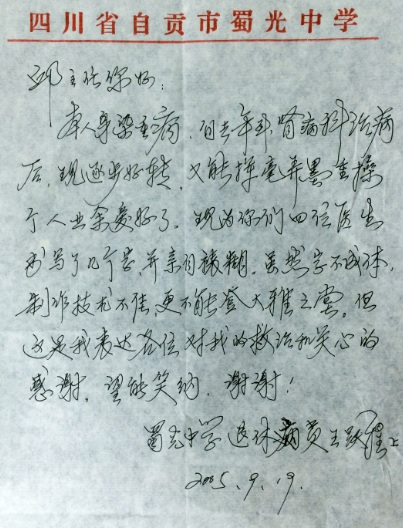 四川省自贡市蜀光中学
邱主任你好：
本人身染重病，自去年到肾病科治病
后，现逐步好转，又能挥毫弄墨重操
个人业余爱好了。现为你们四位医生
书写了几个字，并亲自裱糊。虽然字不成体，
制作技术不佳，更不能登大雅之堂，但
这是我表达各位对我的救治和关心的
感谢，望能笑纳，谢谢！
蜀光中学退休病员王跃上
2005.9.19.